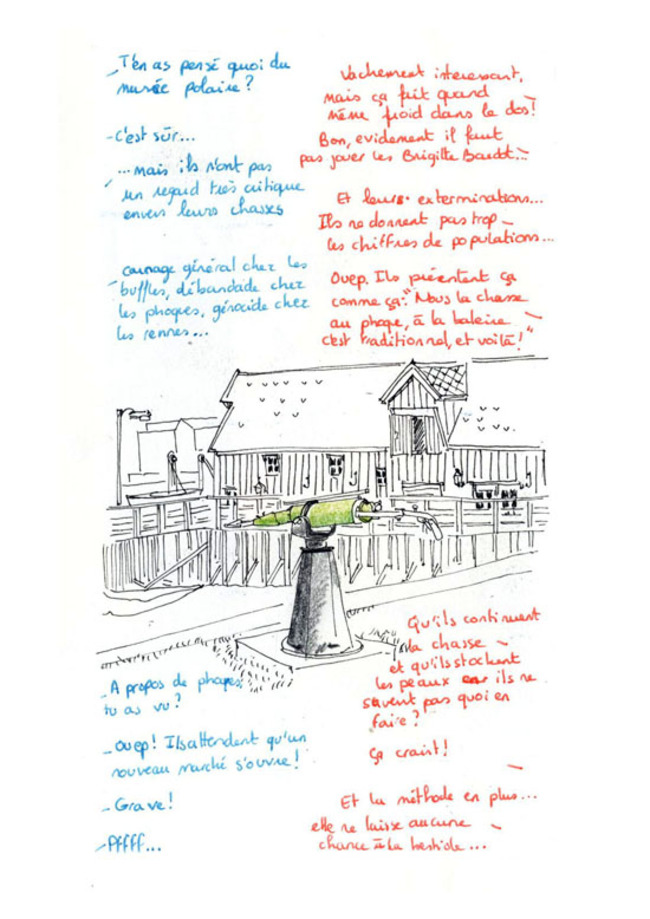 _ T'en as pensé quoi du
musée polaire ?
Vachement interessant,
mais ça fait quand
même froid dans le dos !
- C'est sûr...
Bon, evidement il faut
pas jouer les Brigitte Bardot...
...mais ils n'ont pas
un regard très critique
envers leurs chasses
Et leurs exterminations...
Ils ne donnent pas trop
les chiffres de populations...
carnage général chez les
buffles, débandade chez
les phoques, génocide chez
les rennes...
Ouep. Ils présentent ça
comme ça: "Nous la chasse
au phoque, à la baleine
c'est traditionnel, et voilà !"
_ A propos de phoques:
tu as vu ?
Qu'ils continuent
la chasse
et qu'ils stockent
les peaux car ils ne
savent pas quoi en
faire ?
_ Ouep ! Ils attendent qu'un
nouveau marché s'ouvre !
Ça craint !
_ Grave !
Et la méthode en plus...
elle ne laisse aucune
chance à la bestiole...
_ Pffff...